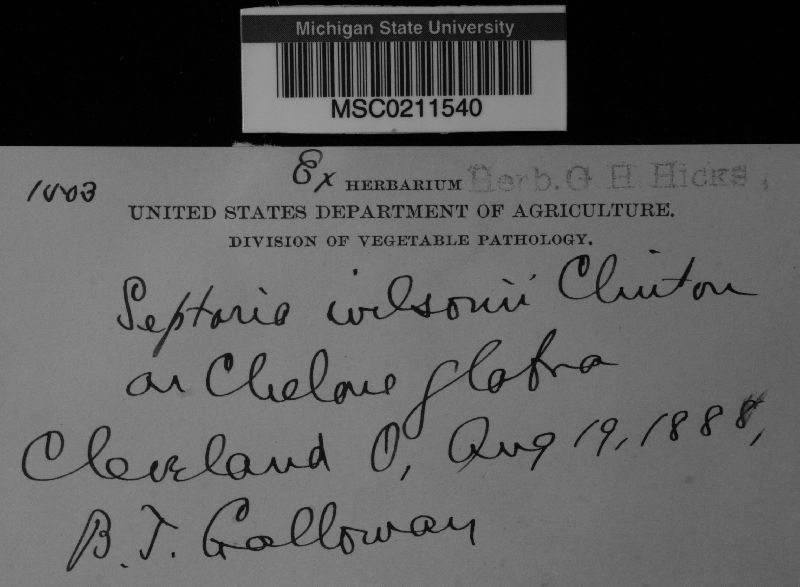 Michigan State University
MSC0211540
Ex HERBARIUM Herb. G H Hicks,
UNITED STATES DEPARTMENT OF AGRICULTURE.
DIVISION OF VEGETABLE PATHOLOGY.
Septoria wilsonii Clinton
on Chelone glabra
Cleveland O, Aug 19, 1888,
B. T. Galloway